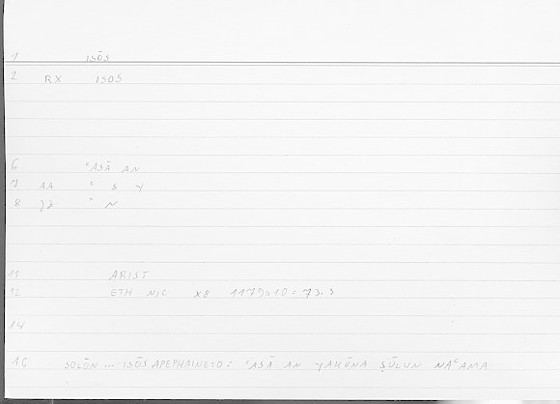 1 ISŌS
2 RX ISOS
6 ʿASĀ AN
7 AA ʿ S Y
8 ʿ N
11 ARIST
12 ETH NIC X8 1179a10 = 73.3
14
16 SOLŌN ... ISŌS APEPHAINETO: ʿASĀ AN YAKŪNA ṢŪLUN NAʿAMA